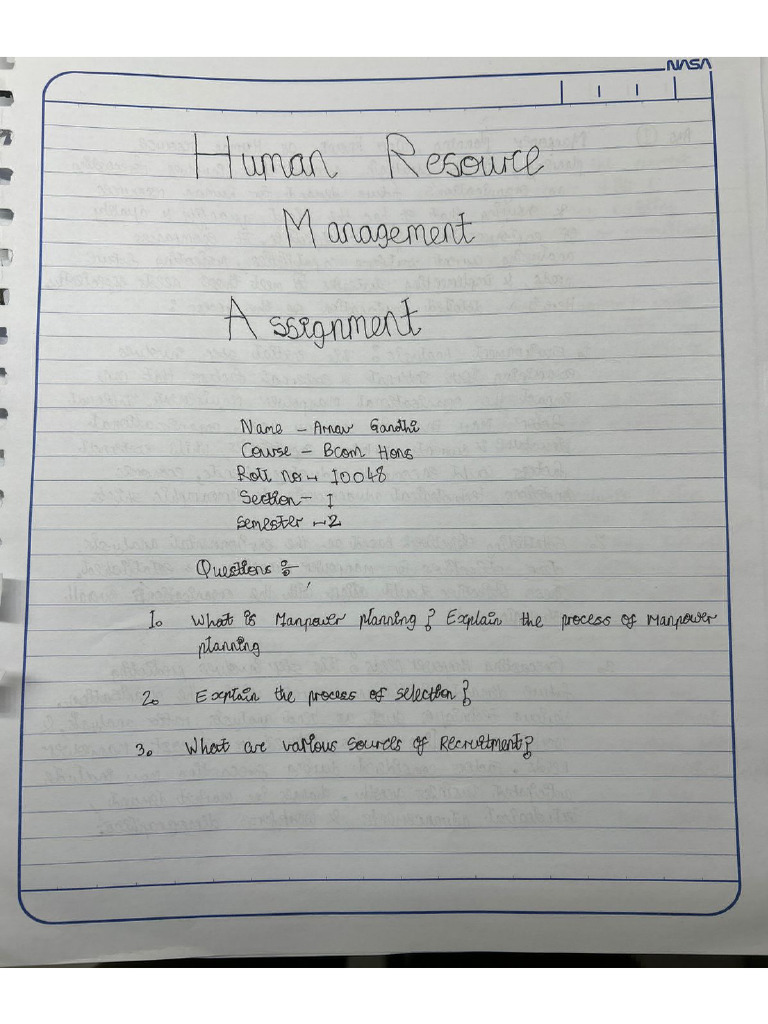 NASA
Human Resource
Management
Assignment
Name - Arnav Gandhi
Course - Bcom Hons
Roll no - 10048
Section - I
Semester - 2
Questions :-
1. What is Manpower planning? Explain the process of Manpower
planning
2. Explain the process of selection?
3. What are various sources of Recruitment?